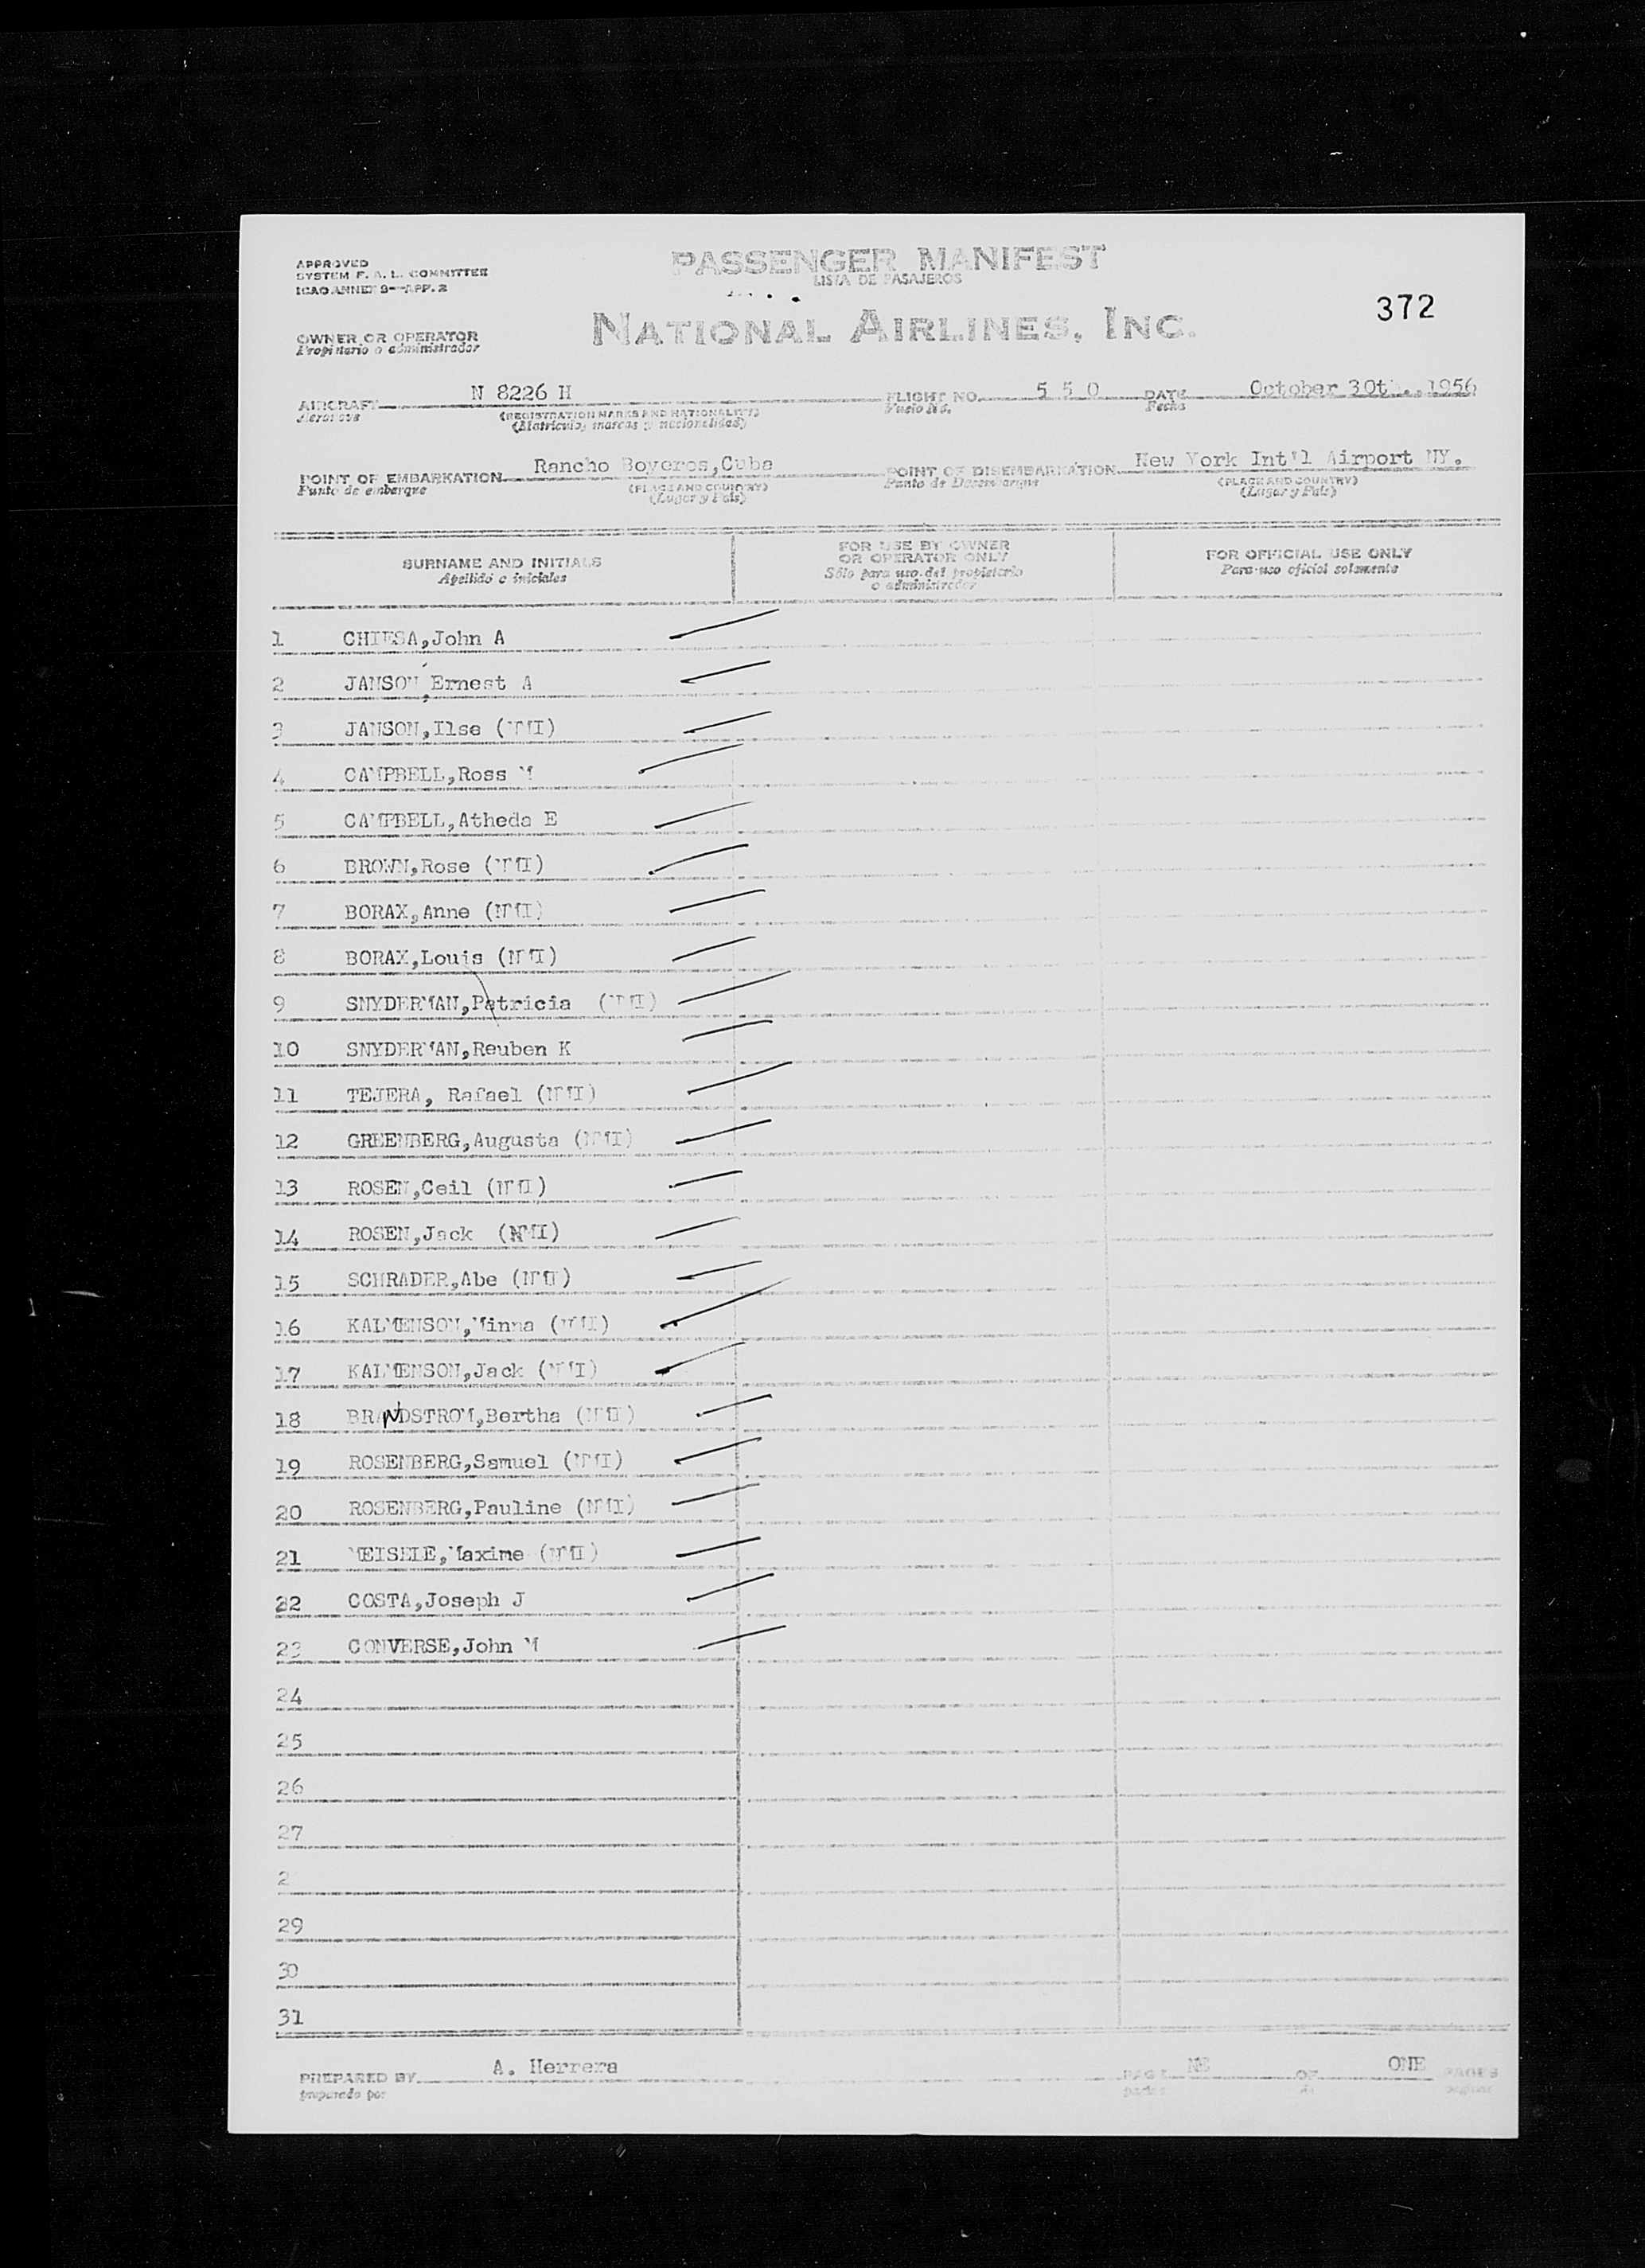 APPROVED
SYSTEM F. A. L. COMMITTEE
ICAO ANNEX 9--APP. 2
PASSENGER MANIFEST
LISTA DE PASAJEROS
372
OWNER OR OPERATOR
Propietario o administrador
NATIONAL AIRLINES, INC.
AIRCRAFT N 8226 H FLIGHT NO. 5 5 0 DATE October 30th., 1956
Aeronave (REGISTRATION MARKS AND NATIONALITY) Vuelo No. Fecha
(Matricula, marcas y nacionalidad)
POINT OF EMBARKATION Rancho Boyeros,Cuba POINT OF DISEMBARKATION New York Int'l Airport NY.
Punto de embarque (PLACE AND COUNTRY) Punto de Desembarque (PLACE AND COUNTRY)
(Lugar y País) (Lugar y País)
SURNAME AND INITIALS FOR USE BY OWNER OR OPERATOR ONLY FOR OFFICIAL USE ONLY
Apellido e iniciales Sólo para uso del propietario o administrador Para uso oficial solamente
1 CHIESA,John A
2 JANSON,Ernest A
3 JANSON,Ilse (NMI)
4 CAMPBELL,Ross M
5 CAMPBELL,Atheda E
6 BROWN,Rose (NMI)
7 BORAX,Anne (NMI)
8 BORAX,Louis (NMI)
9 SNYDERMAN,Patricia (NMI)
10 SNYDERMAN,Reuben K
11 TEJERA, Rafael (NMI)
12 GREENBERG,Augusta (NMI)
13 ROSEN,Ceil (NMI)
14 ROSEN,Jack (NMI)
15 SCHRADER,Abe (NMI)
16 KALMENSON,Minna (NMI)
17 KALMENSON,Jack (NMI)
18 BRANDSTROM,Bertha (NMI)
19 ROSENBERG,Samuel (NMI)
20 ROSENBERG,Pauline (NMI)
21 MEISELE,Maxime (NMI)
22 COSTA,Joseph J
23 CONVERSE,John M
24
25
26
27
2
29
30
31
PREPARED BY A. Herrera PAGE NE OF ONE PAGES
preparado por